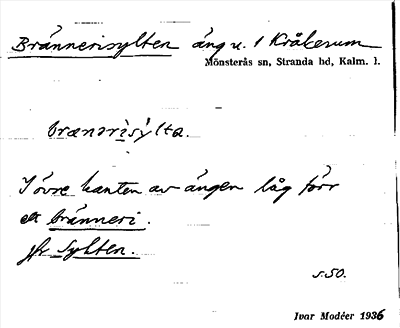 Brännerisylten äng u. 1 Kråkerum
Mönsterås sn, Stranda hd, Kalm. l.
brænərìsy̌lta.
I övre kanten av ängen låg förr
ett bränneri.
jfr Sylten.
s. 50.
Ivar Modéer 1936